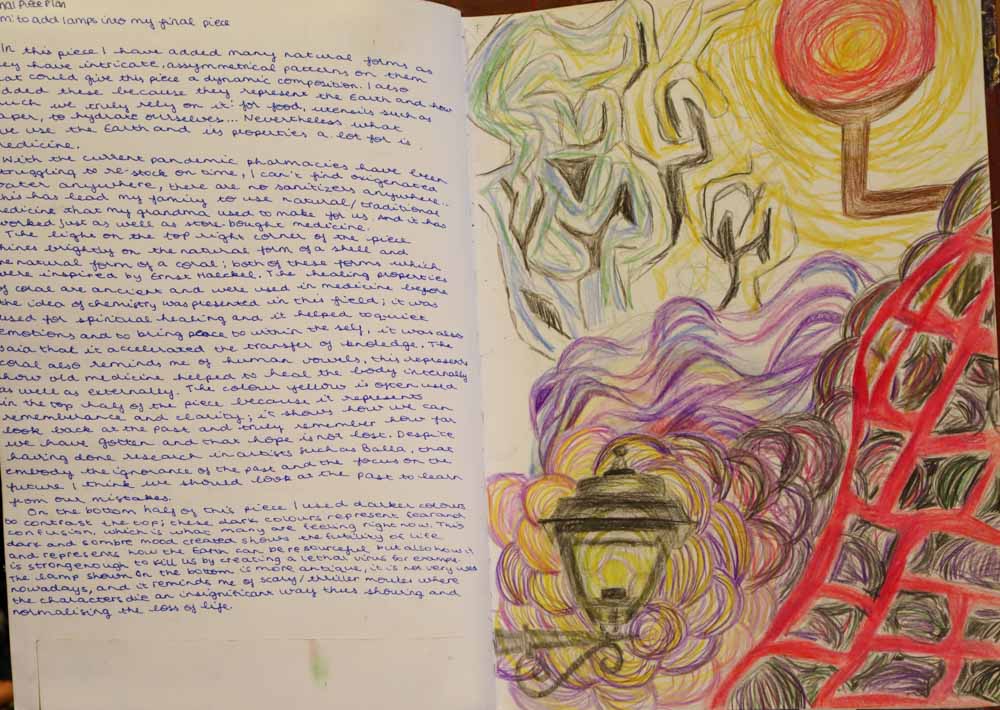 nal Piece Plan
m: to add lamps into my final piece
In this piece I have added many natural forms as
ey have intricate, assymmetrical patterns on them
at could give this piece a dynamic composition. I also
dded these because they represent the Earth and how
uch we truly rely on it: for food, utensils such as
aper, to hydrate ourselves... Nevertheless, what
we use the Earth and its properties a lot for is
edicine.
With the current pandemic pharmacies have been
truggling to re-stock on time, I can't find oxigenated
ater anywhere, there are no sanitizers anywhere...
his has lead my family to use natural/traditional
edicine that my grandma used to make for us and it has
worked just as well as store-bought medicine.
The light on the top right corner of the piece
hines brightly on the natural form of a shell and
he natural form of a coral; both of these forms which
were inspired by Ernst Haeckel. The healing properties
of coral are ancient and were used in medicine before
the idea of chemistry was presented in this field; it was
used for spiritual healing and it helped to quiet
emotions and to bring peace to within the self, it was also
said that it accelerated the transfer of knoledge. The
coral also reminds me of human vowels, this represents
how old medicine helped to heal the body internally
as well as externally. The colour yellow is often used
in the top half of the piece because it represents
remembrance and clarity; it shows how we can
look back at the past and truly remember how far
we have gotten and that hope is not lost. Despite
having done research in artists such as Balla, that
embody the ignorance of the past and the focus on the
future I think we should look at the past to learn
from our mistakes.
On the bottom half of this piece I used darker colours
to contrast the top; these dark colours represent fear and
confusion, which is what many are feeling right now. This
dark and sombre mood created shows the futility of life
and represents how the Earth can be resourceful but also how it
is strong enough to kill us by creating a lethal virus for example.
The lamp shown on the bottom is more antique, it is not very used
nowadays, and it reminds me of scary/thriller movies where
the characters die an insignificant way thus showing and
normalising the loss of life.